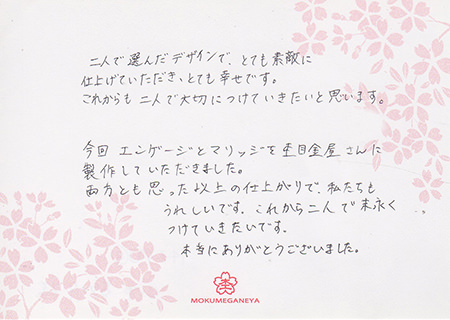 二人で選んだデザインで、とても素敵に
仕上げていただき、とても幸せです。
これからも二人で大切につけていきたいと思います。
今回エンゲージとマリッジを杢目金屋さんに
製作していただきました。
両方とも思った以上の仕上がりで、私たちも
うれしいです。これから二人で末永く
つけていきたいです。
本当にありがとうございました。
杢
MOKUMEGANEYA